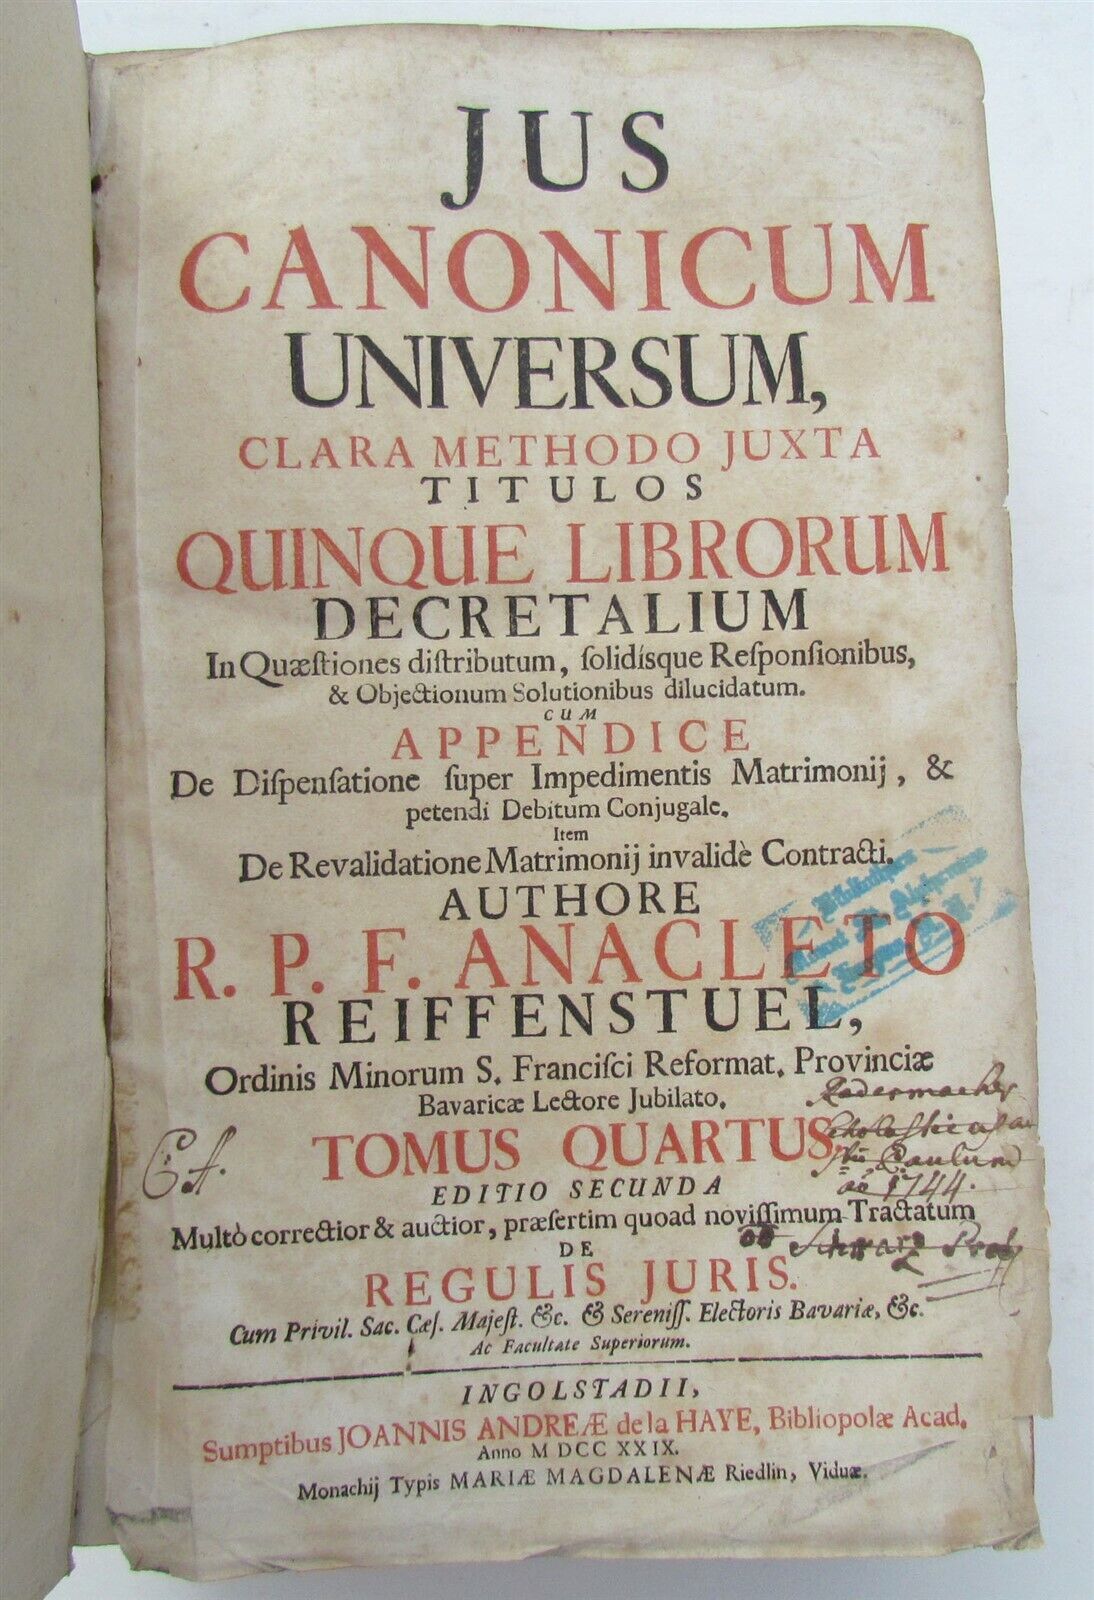 JUS
CANONICUM
UNIVERSUM,
CLARA METHODO JUXTA
TITULOS
QUINQUE LIBRORUM
DECRETALIUM
In Quæſtiones diſtributum, ſolidísque Reſponſionibus,
& Objectionum Solutionibus dilucidatum.
CUM
APPENDICE
De Diſpenſatione ſuper Impedimentis Matrimonij, &
petendi Debitum Conjugale.
Item
De Revalidatione Matrimonij invalidè Contracti.
AUTHORE
R. P. F. ANACLETO
REIFFENSTUEL,
Ordinis Minorum S. Franciſci Reformat. Provinciæ
Bavaricæ Lectore Jubilato.
TOMUS QUARTUS
EDITIO SECUNDA
Multò correctior & auctior, præſertim quoad noviſſimum Tractatum
DE
REGULIS JURIS.
Cum Privil. Sac. Cæſ. Majeſt. &c. & Sereniſſ. Electoris Bavariæ, &c.
Ac Facultate Superiorum.
INGOLSTADII,
Sumptibus JOANNIS ANDREÆ de la HAYE, Bibliopolæ Acad.
Anno M DCC XXIX.
Monachij Typis MARIÆ MAGDALENÆ Riedlin, Viduæ.
Radermacher
Paulum
1744.